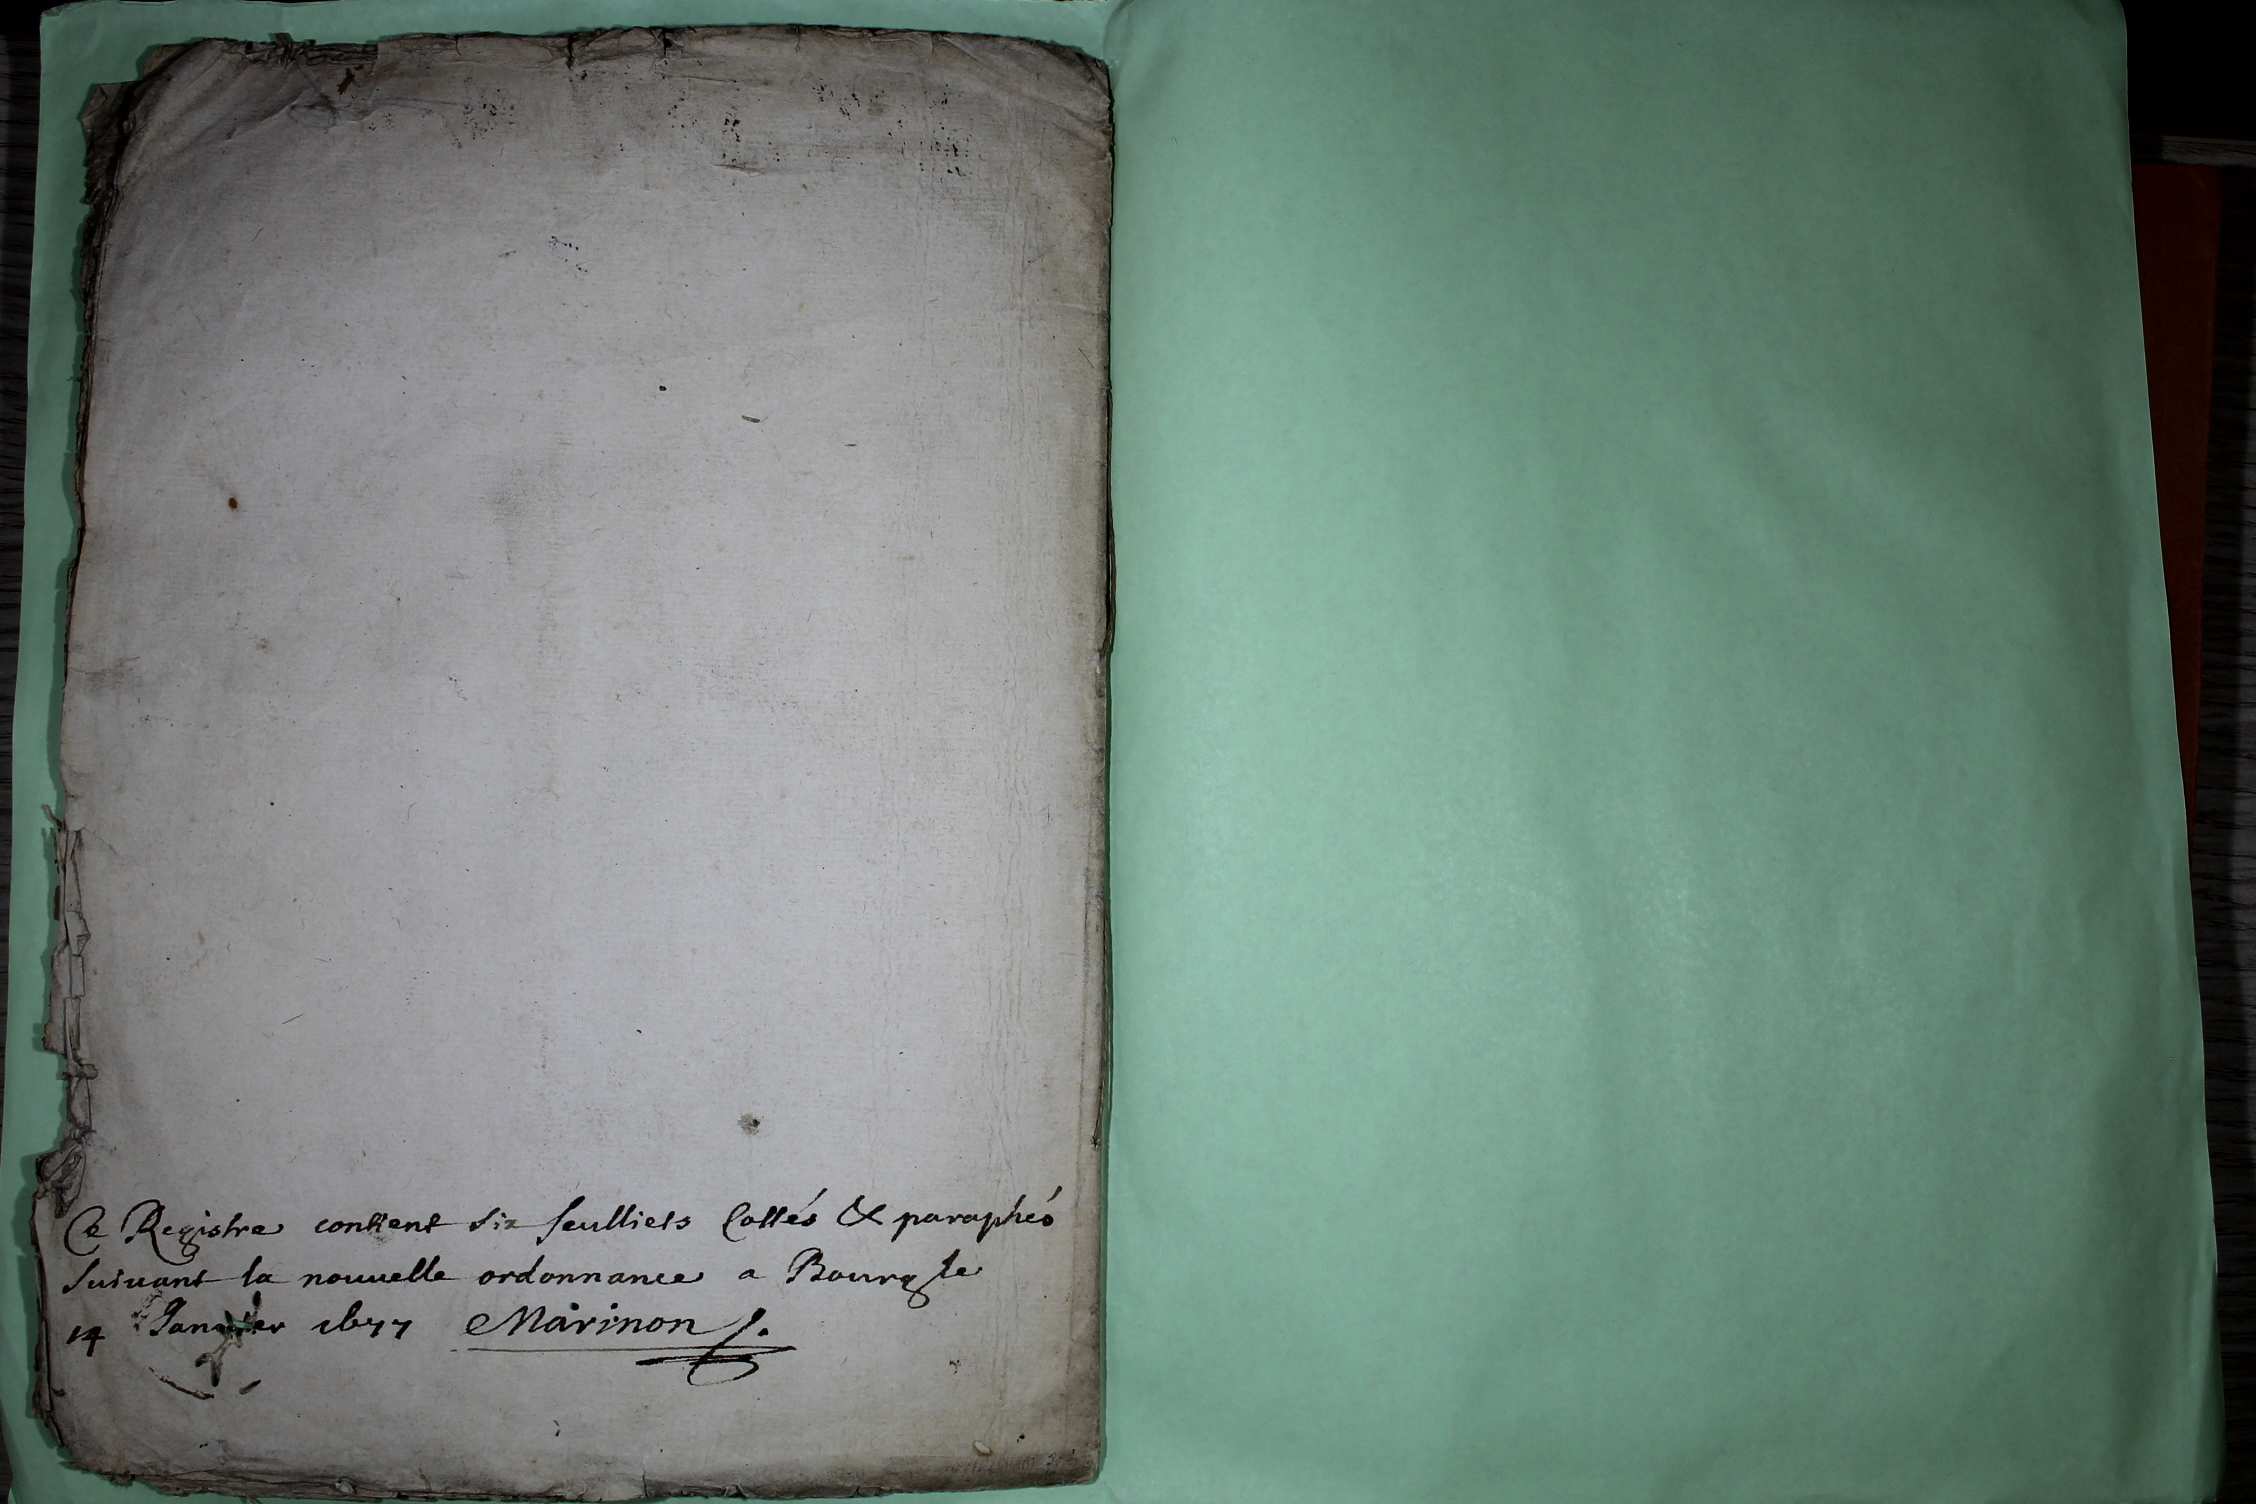 Ce Registre contient six feulliets Cottés & paraphés
suivant la nouvelle ordonnance a Bourg le
14 Janvier 1677 Marinon